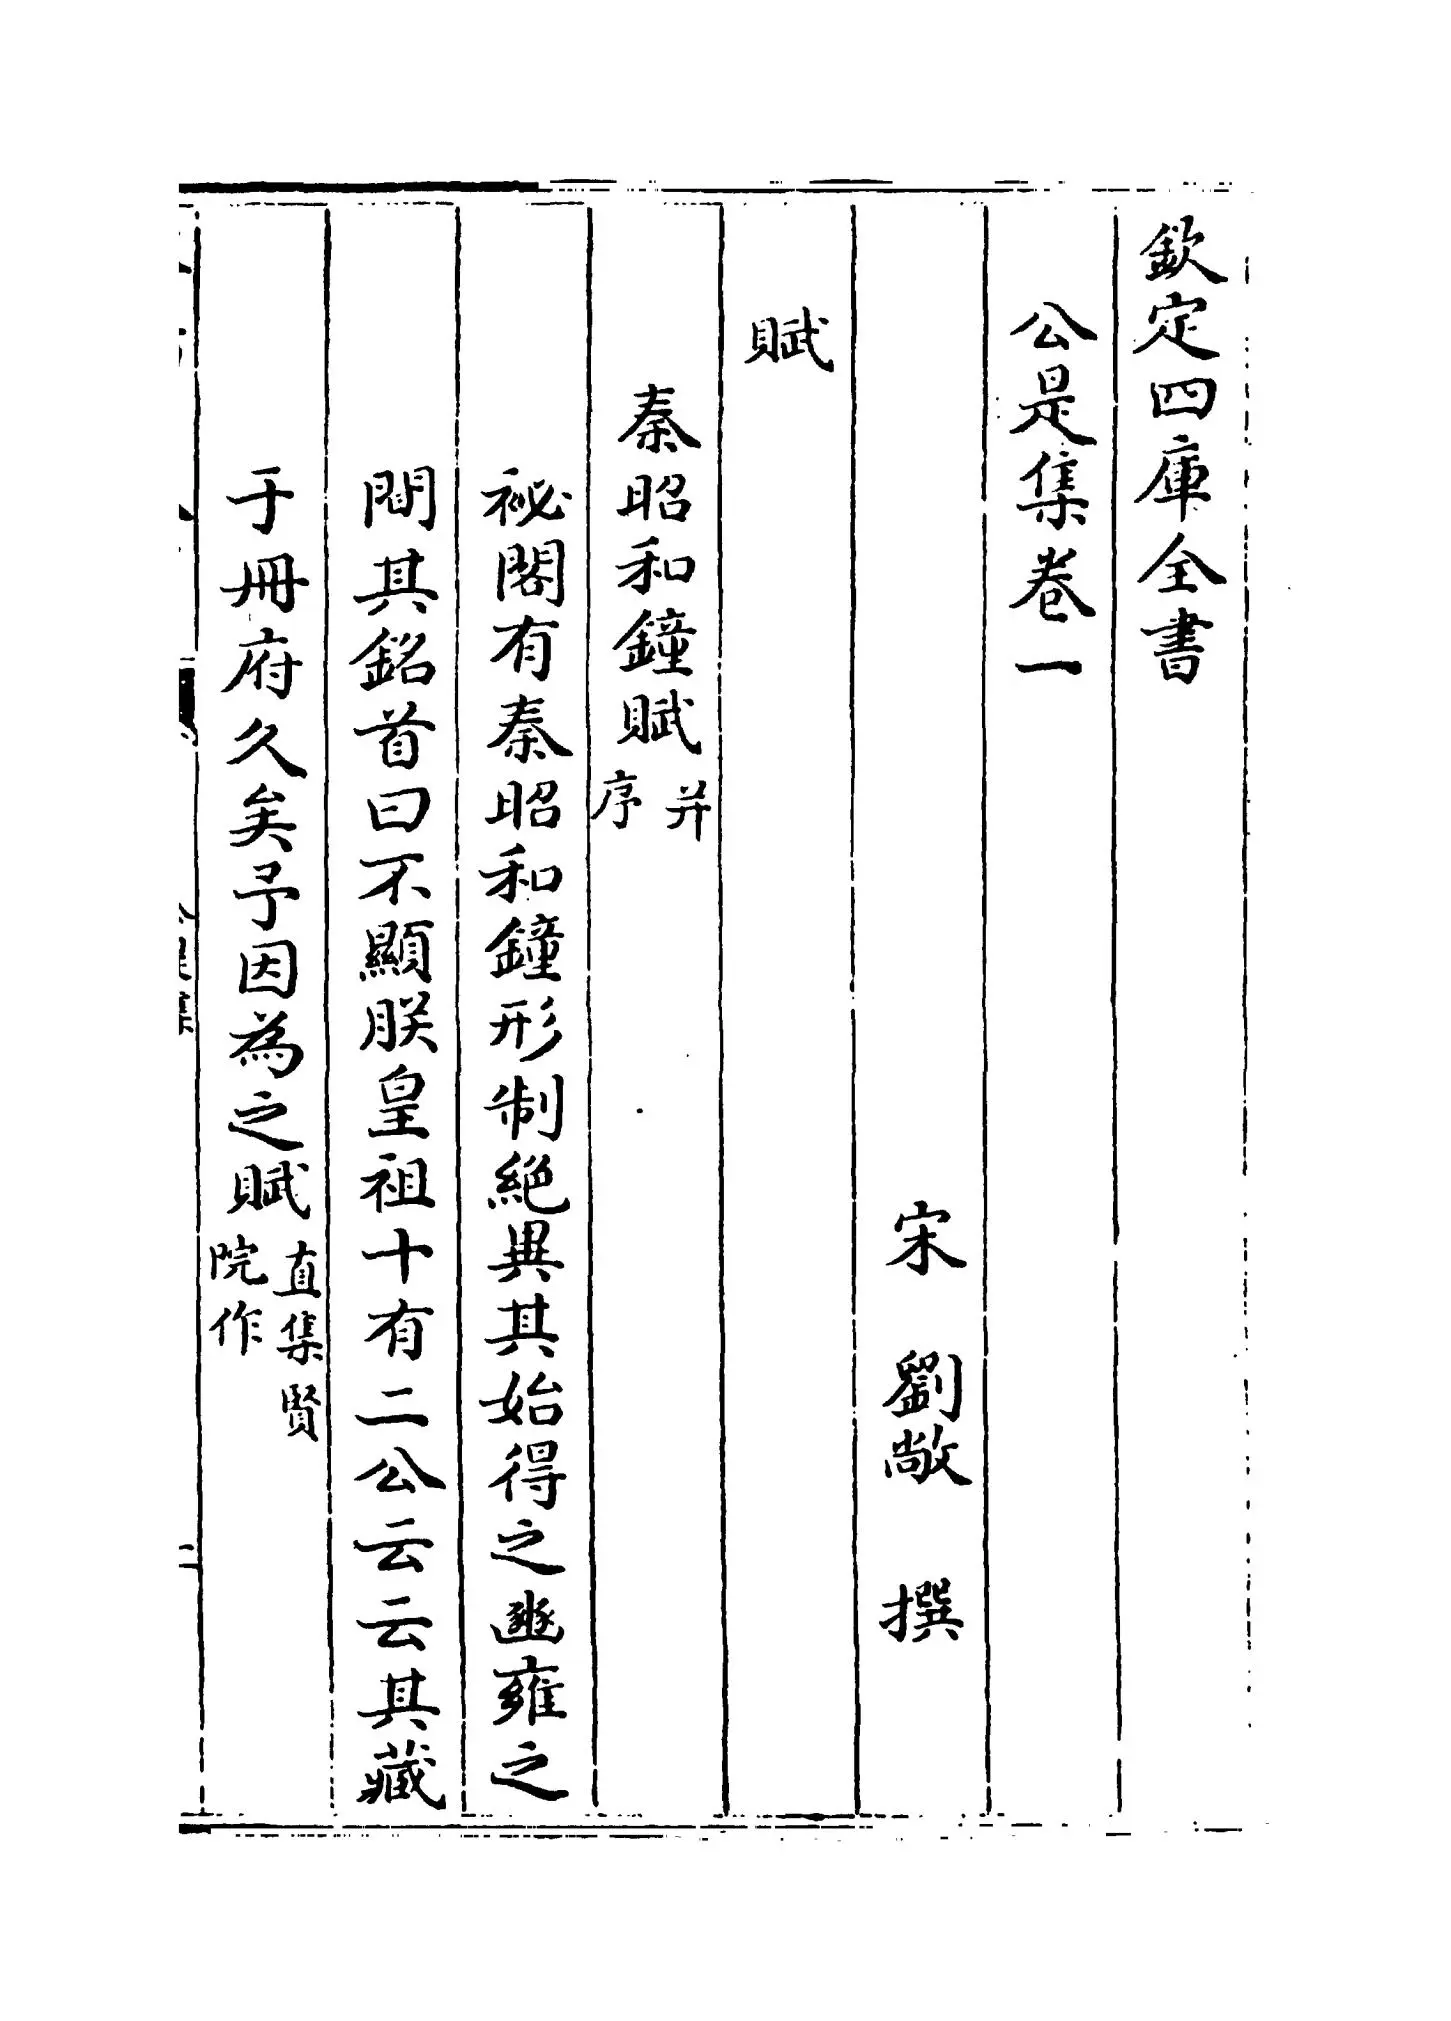 欽定四庫全書
公是集卷一
宋 劉敞 撰
賦
秦昭和鐘賦并序
祕閣有秦昭和鐘形制絶異其始得之豳雍之
間其銘首曰不顯朕皇祖十有二公云云其藏
于冊府久矣予因為之賦直集賢院作